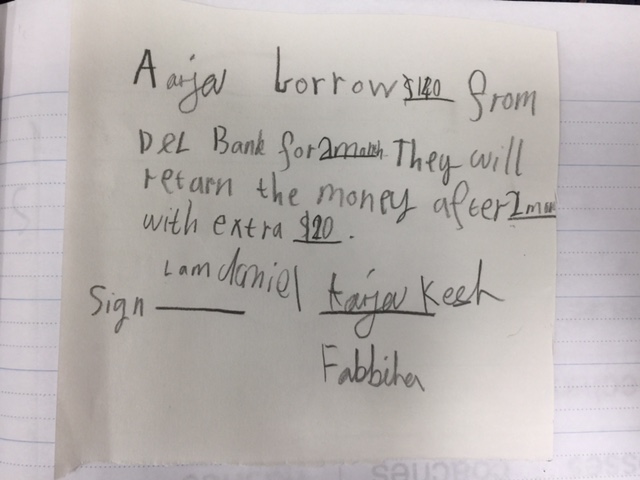 Aarjav borrow $140 from
DEL Bank for 2 month They will
return the money after 2 mon
with extra $20.
Lam daniel Aarjav Kesh
Sign
Fabbiha